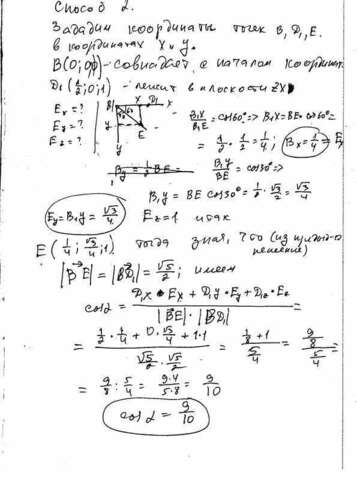 Способ 2.
Зададим координаты точек B, D₁, E.
в координатах X и y.
B(0;0;0) - совпадает с началом координат.
D₁ (1/2; 0; 1) - лежит в плоскости ZX
E_x = ?
E_y = ?
E_z = ?
B₁ X D₁ X
y E
y
B₁X/B₁E = cos60° => B₁X = BE · cos60° =
= 1/2 · 1/2 = 1/4; B_x = 1/4 = E_x
B_y = 1/2 BE =
B₁y/BE = cos30° =>
B₁y = BE cos30° = 1/2 · √3/2 = √3/4
E_y = B₁y = √3/4 E_z = 1 итак
E (1/4; √3/4; 1) тогда зная, что (из
решения)
|BE| = |BD₁| = √5/2; имеем
cos α = (D₁x · E_x + D₁y · E_y + D₁z · E_z) / (|BE| · |BD₁|)
= (1/2 · 1/4 + 0 · √3/4 + 1·1) / (√5/2 · √5/2) = (1/8 + 1) / (5/4) = (9/8) / (5/4) =
= 9/8 : 5/4 = 9·4/5·8 = 9/10
cos α = 9/10